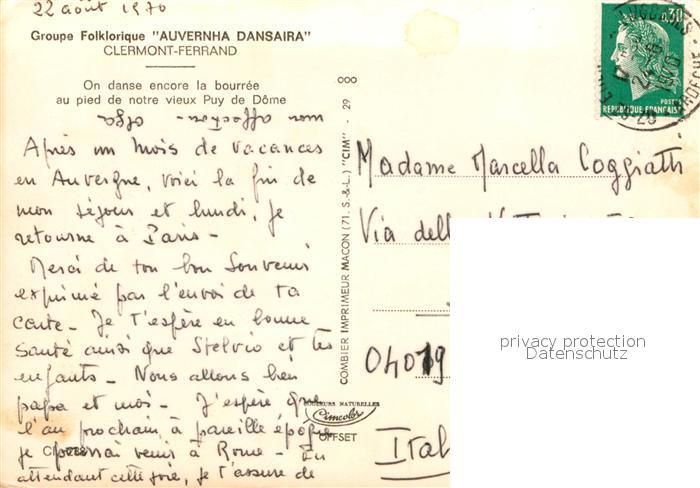 22 août 1970
Groupe Folklorique "AUVERNHA DANSAIRA"
CLERMONT-FERRAND
On danse encore la bourrée
au pied de notre vieux Puy de Dôme
mon affection - Olga
Après un mois de vacances
en Auvergne, voici la fin de
mon séjour et lundi, je
retourne à Paris -
Merci de ton bon souvenir
exprimé par l'envoi de ta
carte - Je t'espère en bonne
santé ainsi que Stelvio et tes
enfants - Nous allons bien
papa et moi - J'espère que
l'an prochain à pareille époque
je pourrai venir à Rome - En
attendant cette joie, je t'assure de
COMBIER IMPRIMEUR MACON (71. S.-&-L.) "CIM" - 29
COULEURS NATURELLES
Cimcolor
OFFSET
0,30
POSTES
REPUBLIQUE FRANÇAISE
Madame Marcella Coggiatti
Via
04019
Ital
privacy protection
Datenschutz